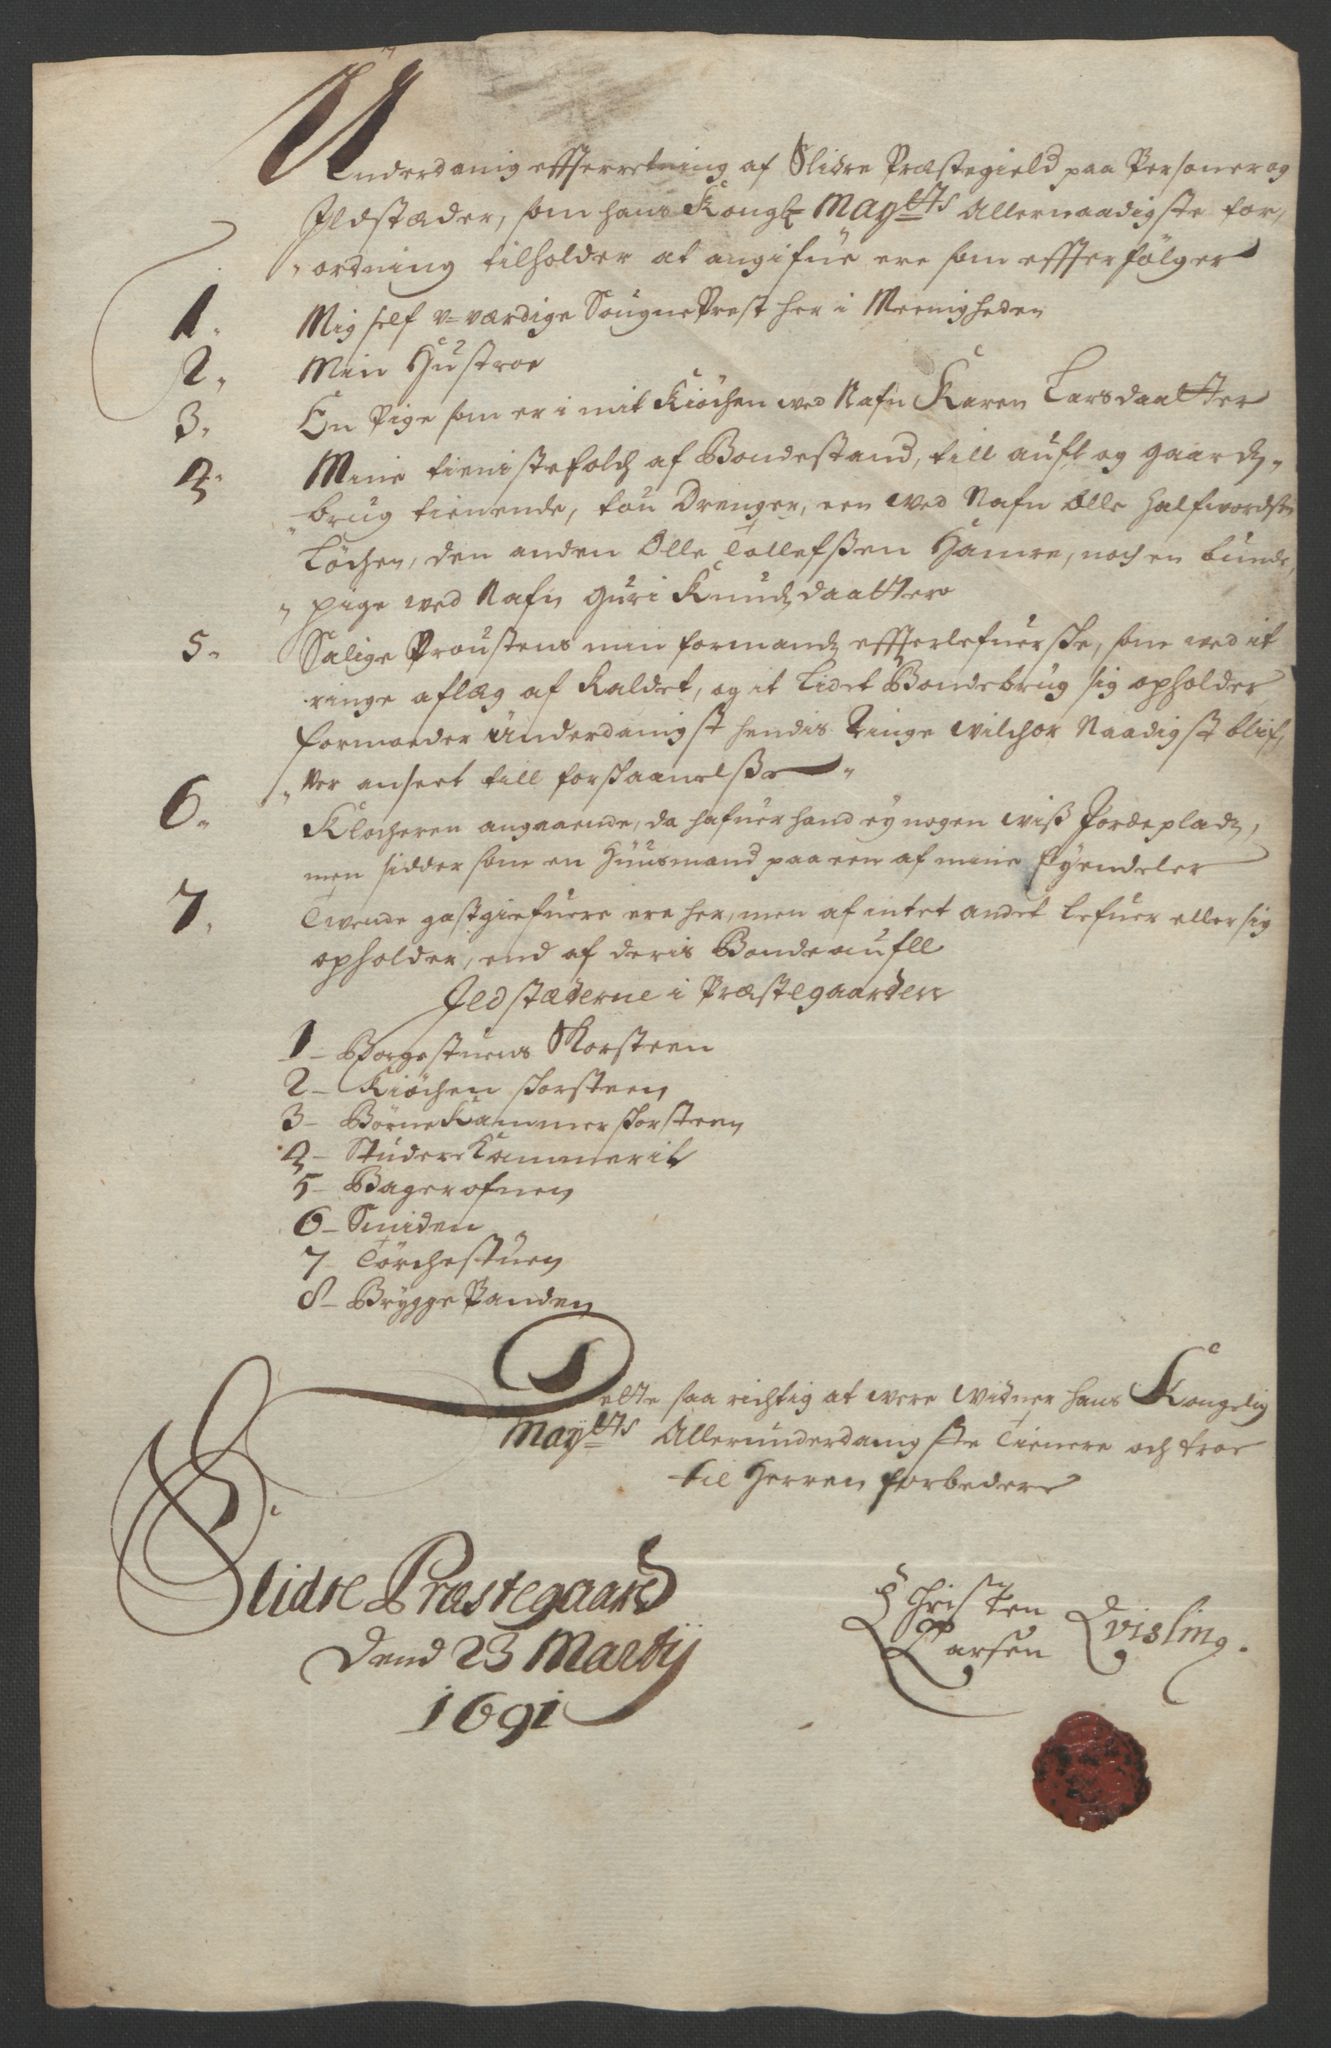 Underdanig effterretning af Slidre Præstegield paa Personer og
Ildstæder, som hans Kongl. Maytts Allernaadigste for-
ordning tilholder at angifue ere som effterfölger
1. Mig self u-værdige SougnePrest her i Meenigheden
2. Min Hustroe
3. En Pige som er i mit Kiöchen wed Nafn Karen Larsdaatter
4. Mine tienistefolch af Bondestand, till aufl og gaardz-
brug tienende, tou Drenger, een wed Nafn Olle Halfwordsen
Löchen, den anden Olle Tollefsßen Hamre, noch en bunde
pige wed Nafn Guri Knudzdaatter
5. Salige Proustens min formandz effterlefuerske, som wed it
ringe aflæg af Kaldet, og it Lidet Bondebrug sig opholder
formoeder Underdanigst hendis Ringe wilchor Naadigst blif-
ver anseet till forskaanelsße
6. Klocheren angaaende, da hafuer hand ey nogen wiß Jordepladz,
men sidder som en Huusmand paa een af mine Eyendeler
7. Twende gastgiefuere ere her, men af intet andet Lefuer eller sig
opholder, end af deris Bonde aufll
Ildstæderne i Præstegaarden
1 - Borgestuens Skorsteen
2 - Kiöchen skorsteen
3 - BörneKammer skorsteen
4 - StudereKammerit
5 - Bagerofnen
6 - Smiden
7 Törchestuen
8 - BryggePanden
Dette saa richtig at were Widner hans Kongelig
Maytts Allerunderdanigste Tienere och troe
til Herren forbedere
Slidre Præstegaard
Dend 23 Martij
1691
Christen
Larsen Qvisling.